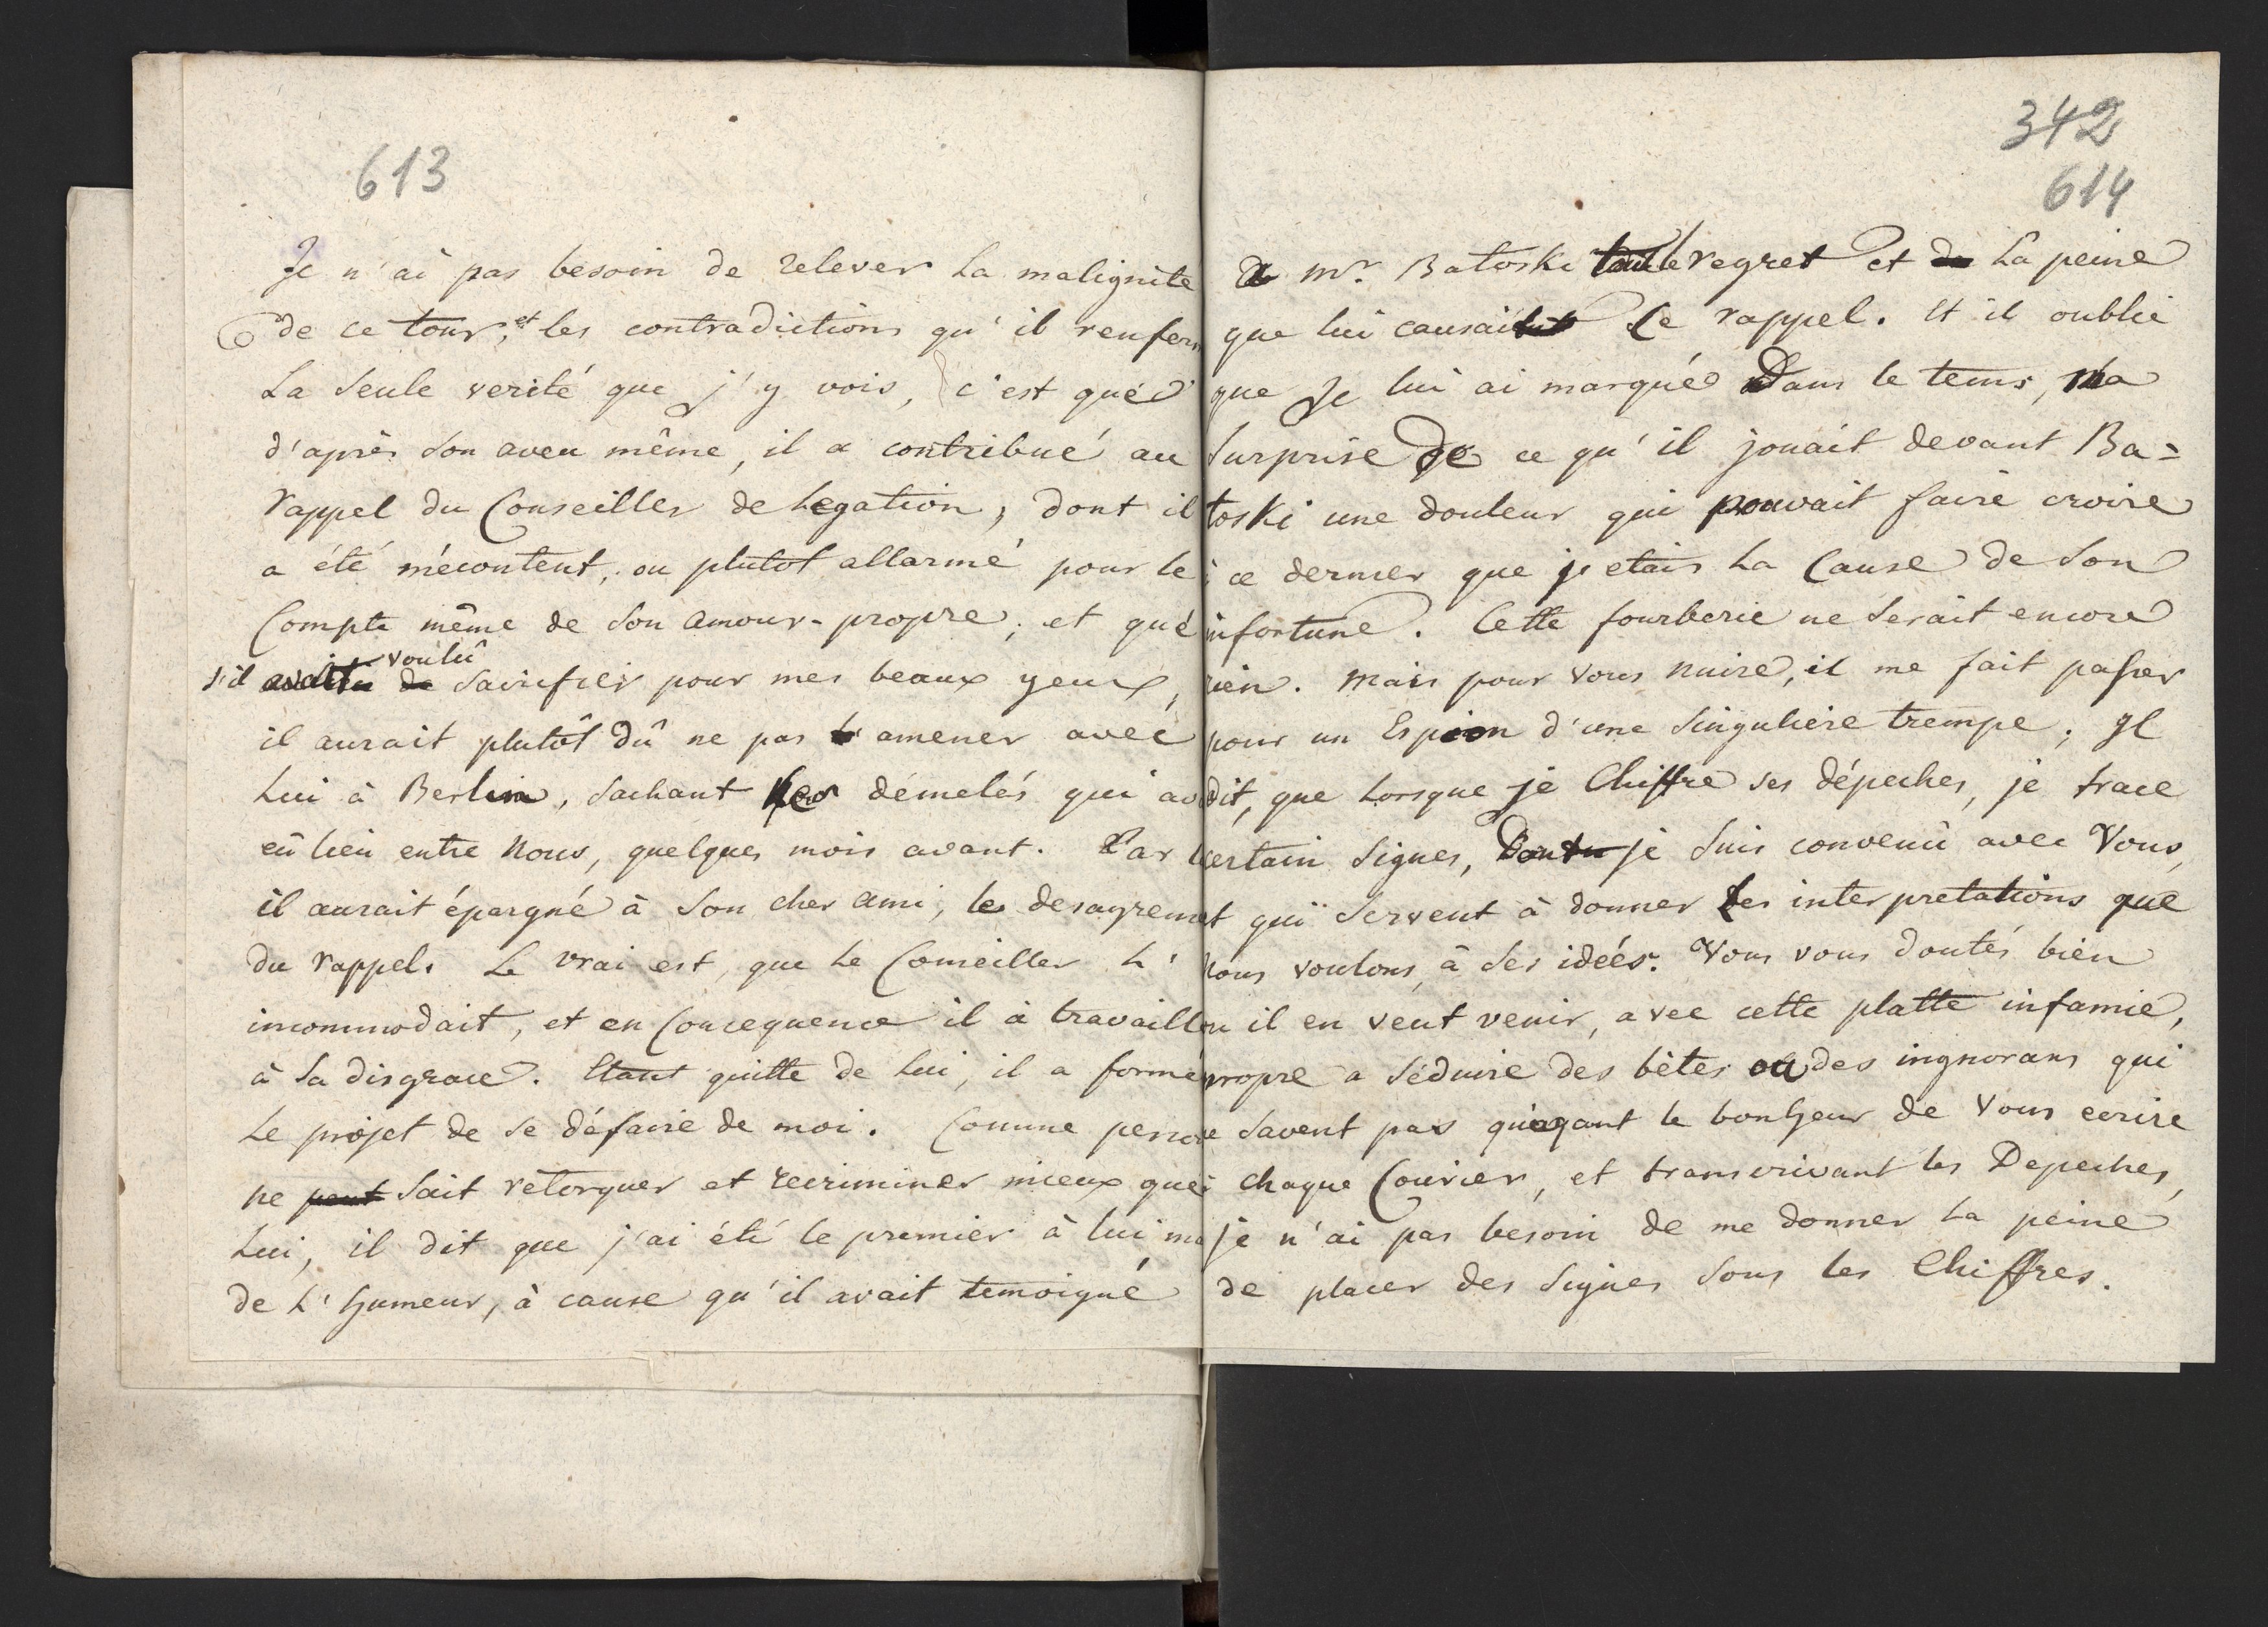 613
Je n'ai pas besoin de relever La malignité
de ce tour, et les contradictions qu'il renfer
La Seule verité que j'y vois, c'est que
d'après Son aveu même, il a contribué au
rappel du Conseiller de Legation, dont il
a été mécontent, ou plutot allarmé pour le
Compte même de Son amour-propre; et que
s'il avait voulû Sacrifier pour mes beaux yeux,
il aurait plutôt dû ne pas amener avec
Lui à Berlin, Sachant les démelés qui av
eû lieu entre Nous, quelques mois avant. Par
il aurait épargné à Son cher ami, les desagrem
du rappel. Le vrai est, que Le Conseiller L'
incommodait, et en Consequence il a travaill
à Sa disgrace. Etant quitte de Lui, il a formé
Le projet de se défaire de moi. Comme person
ne peut Sait retorquer et recriminer mieux que
Lui, il dit que j'ai été le premier à lui ma
de L'humeur, à cause qu'il avait temoigné
342
614
à Mr. Batoski le regret et La peine
que lui causait Ce rappel. Et il oublie
que Je lui ai marqué Dans le tems, Ma
Surprise de ce qu'il jouait devant Ba=
toski une douleur qui pouvait faire croire
à ce dernier que j'etais La Cause de Son
infortune. Cette fourberie ne Serait encore
rien. Mais pour vous nuire, il me fait passer
pour un Espion d'une Singuliere trempe; Il
dit, que Lorsque je Chiffre ses dépeches, je trace
certain Signes, Dont je Suis convenû avec Vous,
et qui Servent à donner les interpretations que
Nous voulons à Ses idées. Vous vous doutés bien
ou il en veut venir, avec cette platte infamie,
propre a Séduire des bêtes ou des ingnorans qui
ne Savent pas qu'ayant le bonheur de Vous ecrire
à chaque Courier, et transcrivant les Depeches,
je n'ai pas besoin de me donner La peine
de placer des Signes Sous les Chiffres.